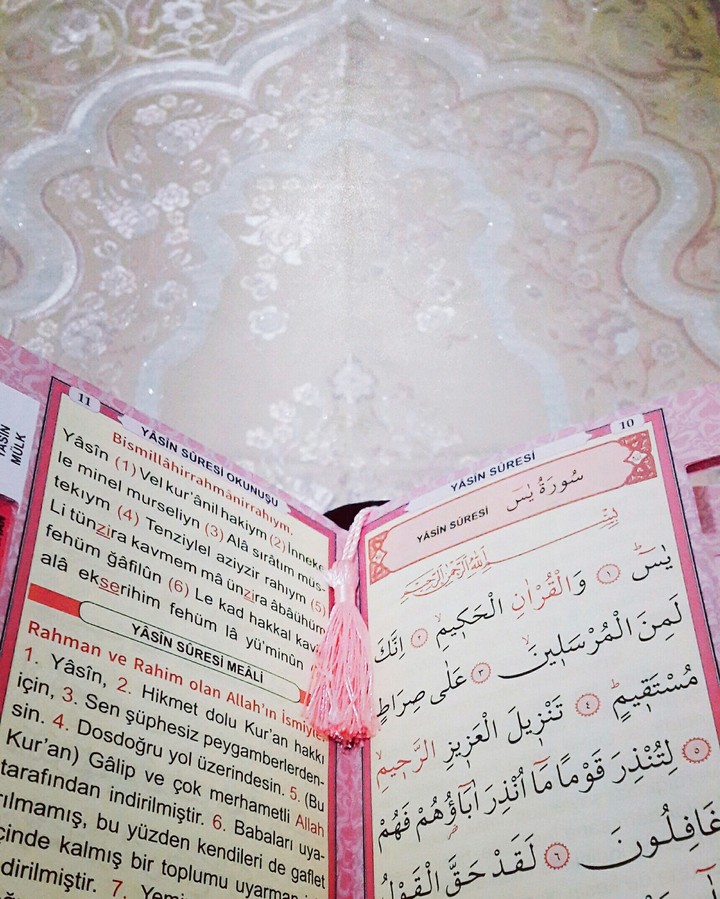 YÂSİN
MÜLK
11
YÂSÎN SÛRESİ OKUNUŞU
Bismillâhirrahmânirrahıym.
Yâsîn (1) Vel kur'ânil hakiym (2) İnneke
le minel murseliyn (3) Alâ sırâtım müs-
tekıym (4) Tenziylel aziyzir rahıym (5)
Li tünzira kavmem mâ ünzira âbâühüm
fehüm ğâfilûn (6) Le kad hakkal kav
alâ ekserihim fehüm lâ yü'minûn
YÂSÎN SÛRESİ MEÂLİ
Rahman ve Rahim olan Allah'ın ismiyle
1. Yâsîn, 2. Hikmet dolu Kur'an hakkı
için, 3. Sen şüphesiz peygamberlerden-
sin. 4. Dosdoğru yol üzerindesin. 5. (Bu
Kur'an) Gâlip ve çok merhametli Allah
tarafından indirilmiştir. 6. Babaları uya-
rılmamış, bu yüzden kendileri de gaflet
içinde kalmış bir toplumu uyarman
dirilmiştir. 7.
10
YÂSÎN SÛRESİ
YÂSÎN SÛRESİ سُورَةُ يٰسٓ
بِسْمِ اللّٰهِ الرَّحْمٰنِ الرَّحِيمِ
يٰسٓ ١ وَالْقُرْاٰنِ الْحَكِيمِ ٢ اِنَّكَ
لَمِنَ الْمُرْسَلِينَ ٣ عَلٰى صِرَاطٍ
مُسْتَقِيمٍ ٤ تَنْزِيلَ الْعَزِيزِ الرَّحِيمِ
٥ لِتُنْذِرَ قَوْمًا مَٓا اُنْذِرَ اٰبَٓاؤُهُمْ فَهُمْ
غَافِلُونَ ٦ لَقَدْ حَقَّ الْقَوْلُ